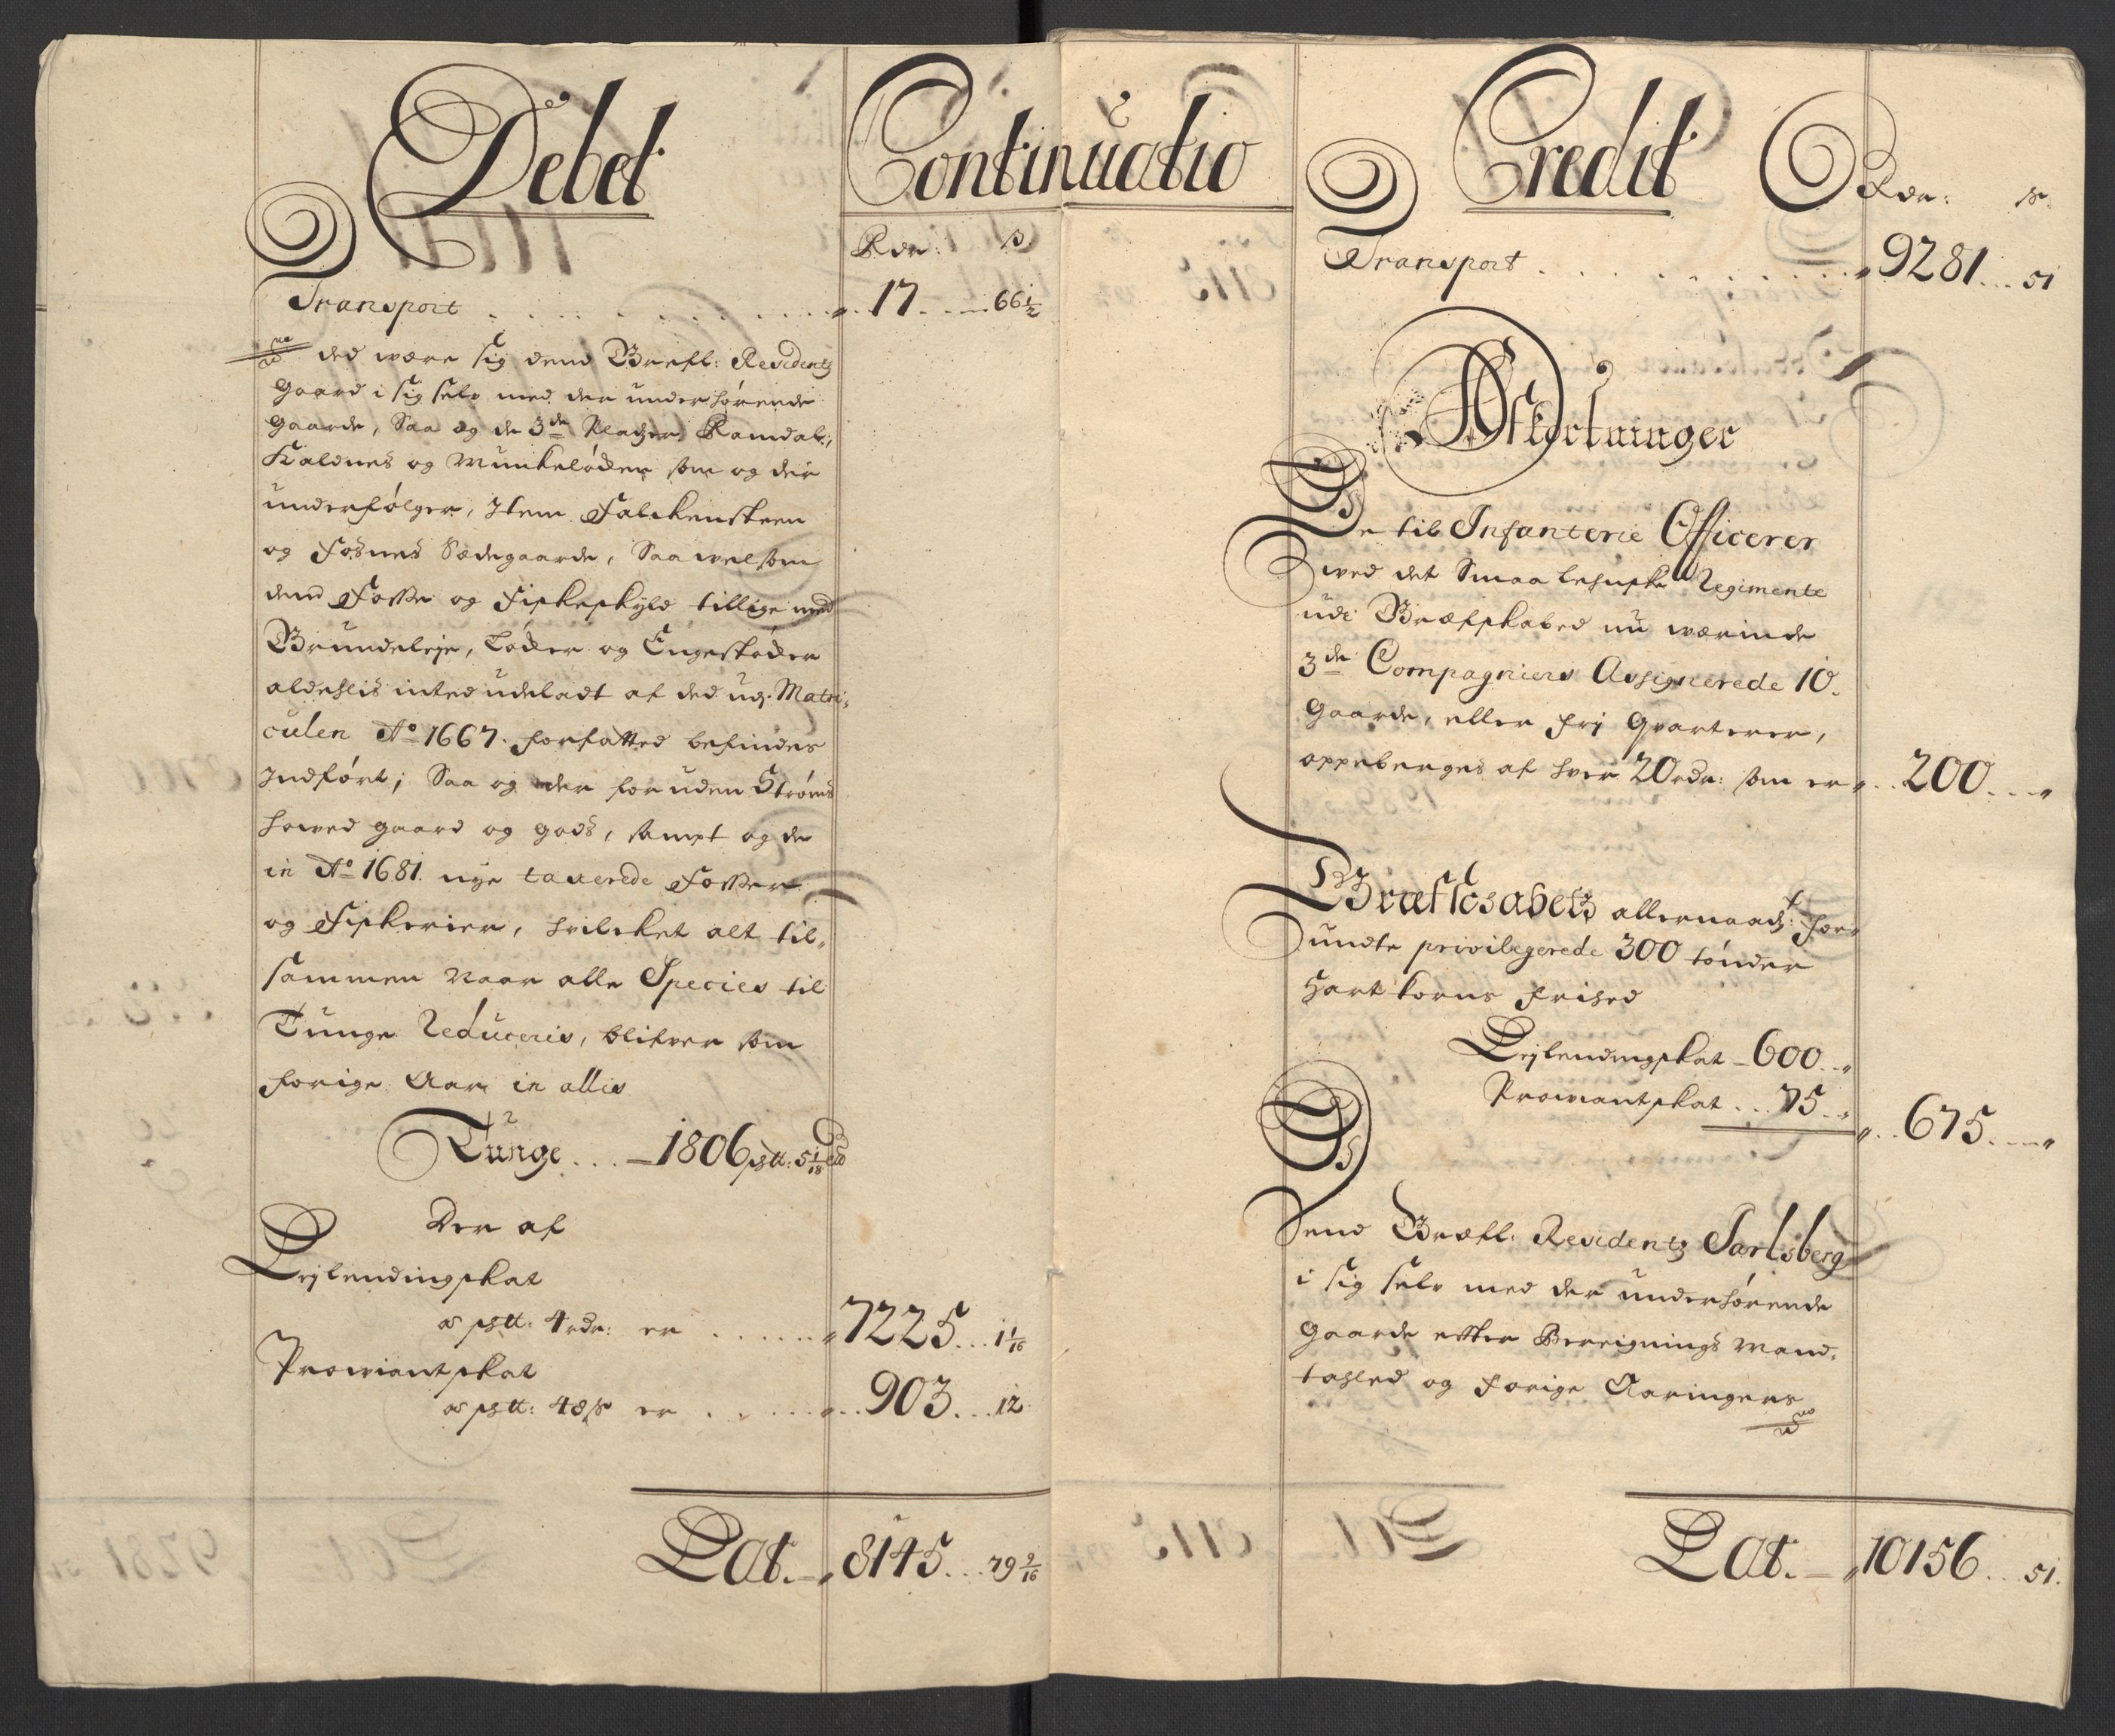 Debet Continuatio
Rdr: ß
Transport . . . . 17 . . . 66 1/2
ded være sig dend Grefl: Residentz
Gaard i sig selv med der under hörende
Gaarde, Saa og de 3de Pladzer, Ramdal,
Kaldnes og Munkelöcken som og der
underfölger, Item Falckensteen
og Fosnes Sædegaarde, Saa vel som
dend Fosse og Fiskeskyld tillige med
Grundeleje, Löcker og Engestöcker
aldehlis inted udeladt af ded udj Matri,
culen Ao 1667. forfatted befindes
Indfört; Saa og der foruden Ströms
hoved gaard og gods, sampt og de
in Ao 1681. nye taxerede Fosser
og Fiskerier, hvilcket alt til,
sammen naar alle Species til
Tunge Reduceris, blifver som
forige Aar in allis
Tunge . . . 1806 pstt: 5 1/18
Der af
Lejlendingskat
a pstt: 4 rdr: er . . . . . 7225 . . . 1 1/16
Proviantskat
a pstt: 48 ß er . . . . . 903 . . . 12
Lat. 8145 . . . 79 9/16
Credit
Rdr: ß
Transport . . . . . 9281 . . . 51
Afkortninger
De til Infanterie Officerer
ved det Smaalehnske Regimente
udi Græfskabed nu værende
3de Compagnier Assignerede 10
Gaarde, eller frj Qvarterer,
oppeberges af hver 20 rdr: som er . . 200 . . .
Græfskabetz allernaadst: for,
undte privilegerede 300 tönder
Hart korns frihed
Lejlendingskat - 600 . .
Proviantskat . . . 75 . .
. . 675 . . .
Dend Græfl: Residentz Jarlsberg
i sig selv med der underhörende
Gaarde efter Bereignings Mand,
tahled og forige Aaringers
Lat. 10156 . . 51.